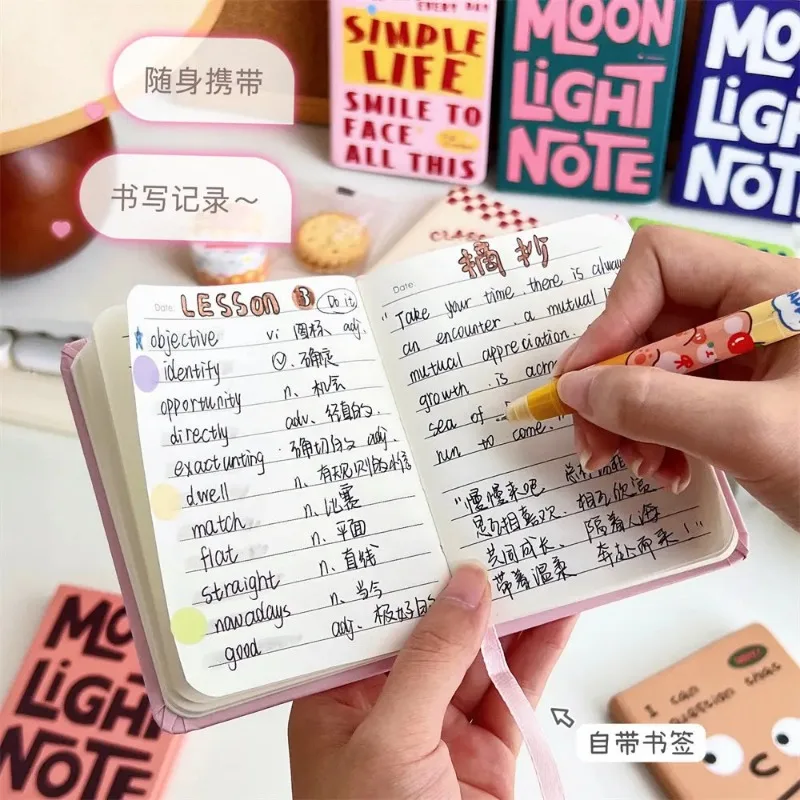 随身携带
书写记录~
EVERY DAY
SIMPLE
LIFE
SMILE TO
FACE
ALL THIS
MOON
LIGHT
NOTE
MO
LIG
NOT
Date:
LESSON 3
Do it
objective vi 圆标 adj.
identify 确定
opportunity n. 机层
directly adv. 径直的
exactunting 确切的 adj.
dwell n. 有规则的
match n. 比赛
flat n. 平面
straight n. 直线
nowadays n. 当今
good adj. 极好的
Date:
摘抄
"Take your time, there is always
an encounter, a mutual
mutual appreciation.
growth is
sea of
run to come.
"慢慢来吧 总有
相喜欢、相互欣赏
共同成长、隔着人海
带着温柔 奔赴而来!"
自带书签
MO
LIGH
NOTE
I can